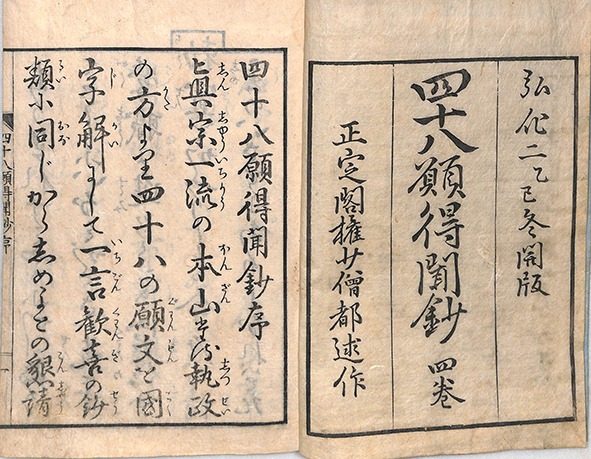 弘化二乙巳冬開版
四十八願得聞鈔 四巻
正定閣権少僧都述作
四十八願得聞鈔序
眞宗一流の本山たる執政
の方より四十八の願文を國
字解にして一言歡喜の鈔
類に同じからしめよとの懇請
四十八願得聞鈔序
一